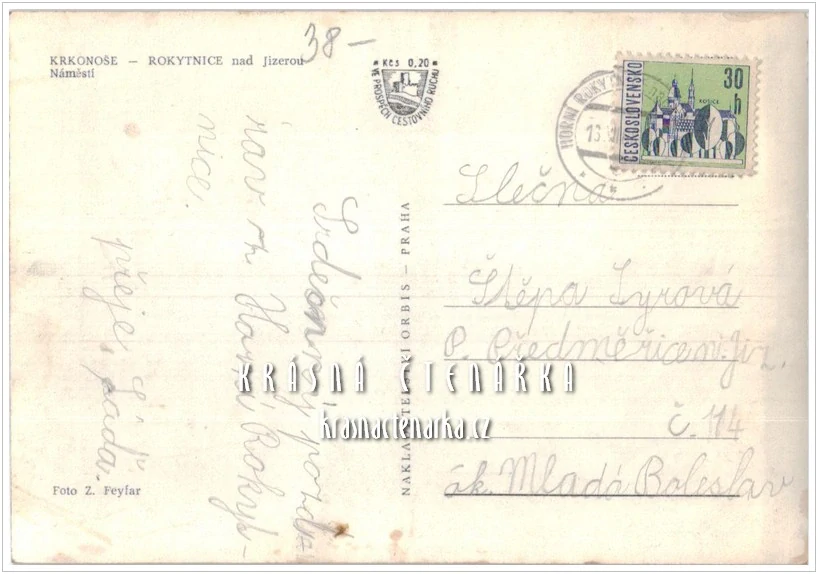 KRKONOŠE – ROKYTNICE nad Jizerou
Náměstí
38 –
Kčs 0,20
VE PROSPĚCH CESTOVNÍHO RUCHU
HORNÍ
13
ČESKOSLOVENSKO
30 h
KOŠICE
Srdečný pozd-
rav z Horní Rokyt-
nice.
přeje
Láďa.
NAKLADATELSTVÍ ORBIS – PRAHA
Slečna
Štěpa Syrová
P. Předměřice n. Jiz.
č. 114
ok. Mladá Boleslav
KRÁSNÁ ČTENÁŘKA
krasnactenarka.cz
Foto Z. Feyfar